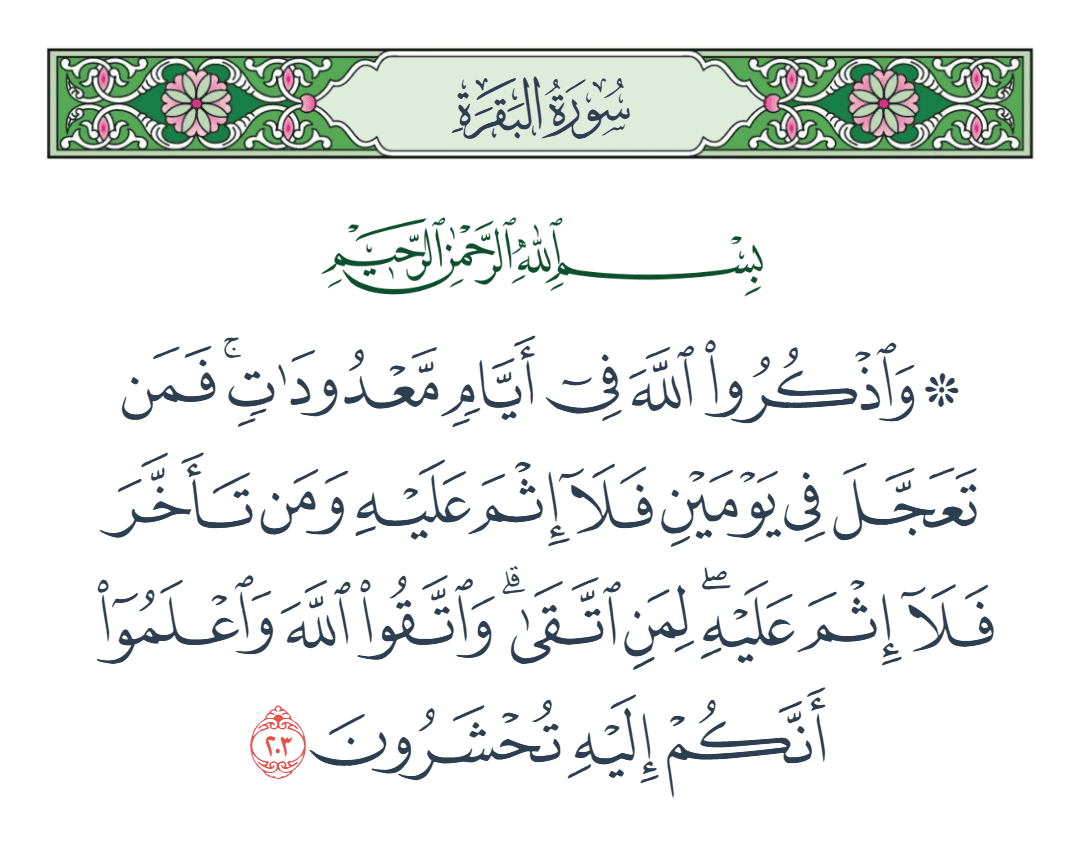 سُورَةُ البَقَرَةِ
بِسْمِ ٱللَّهِ ٱلرَّحْمَٰنِ ٱلرَّحِيمِ
۞ وَٱذْكُرُوا۟ ٱللَّهَ فِىٓ أَيَّامٍ مَّعْدُودَٰتٍ ۚ فَمَن
تَعَجَّلَ فِى يَوْمَيْنِ فَلَآ إِثْمَ عَلَيْهِ وَمَن تَأَخَّرَ
فَلَآ إِثْمَ عَلَيْهِ ۖ لِمَنِ ٱتَّقَىٰ ۗ وَٱتَّقُوا۟ ٱللَّهَ وَٱعْلَمُوٓا۟
أَنَّكُمْ إِلَيْهِ تُحْشَرُونَ ٢٠٣